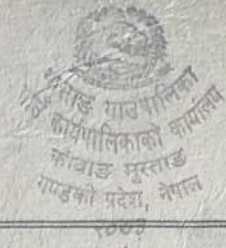 गाउँपालिका
कार्यपालिकाको कार्यालय
कोवाङ मुस्ताङ
गण्डकी प्रदेश, नेपाल
२०७३